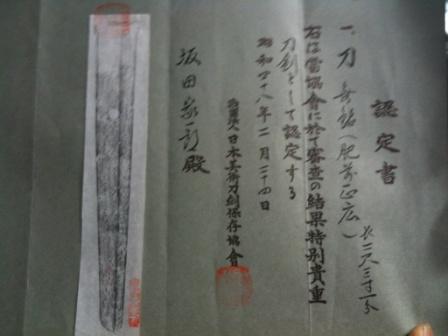 認定書
一、刀 無銘（肥前正広）長二尺三寸一分
右は當協會に於て審査の結果特別貴重
刀剣として認定する
昭和廿八年二月二十四日
財團法人日本美術刀剣保存協會
殿